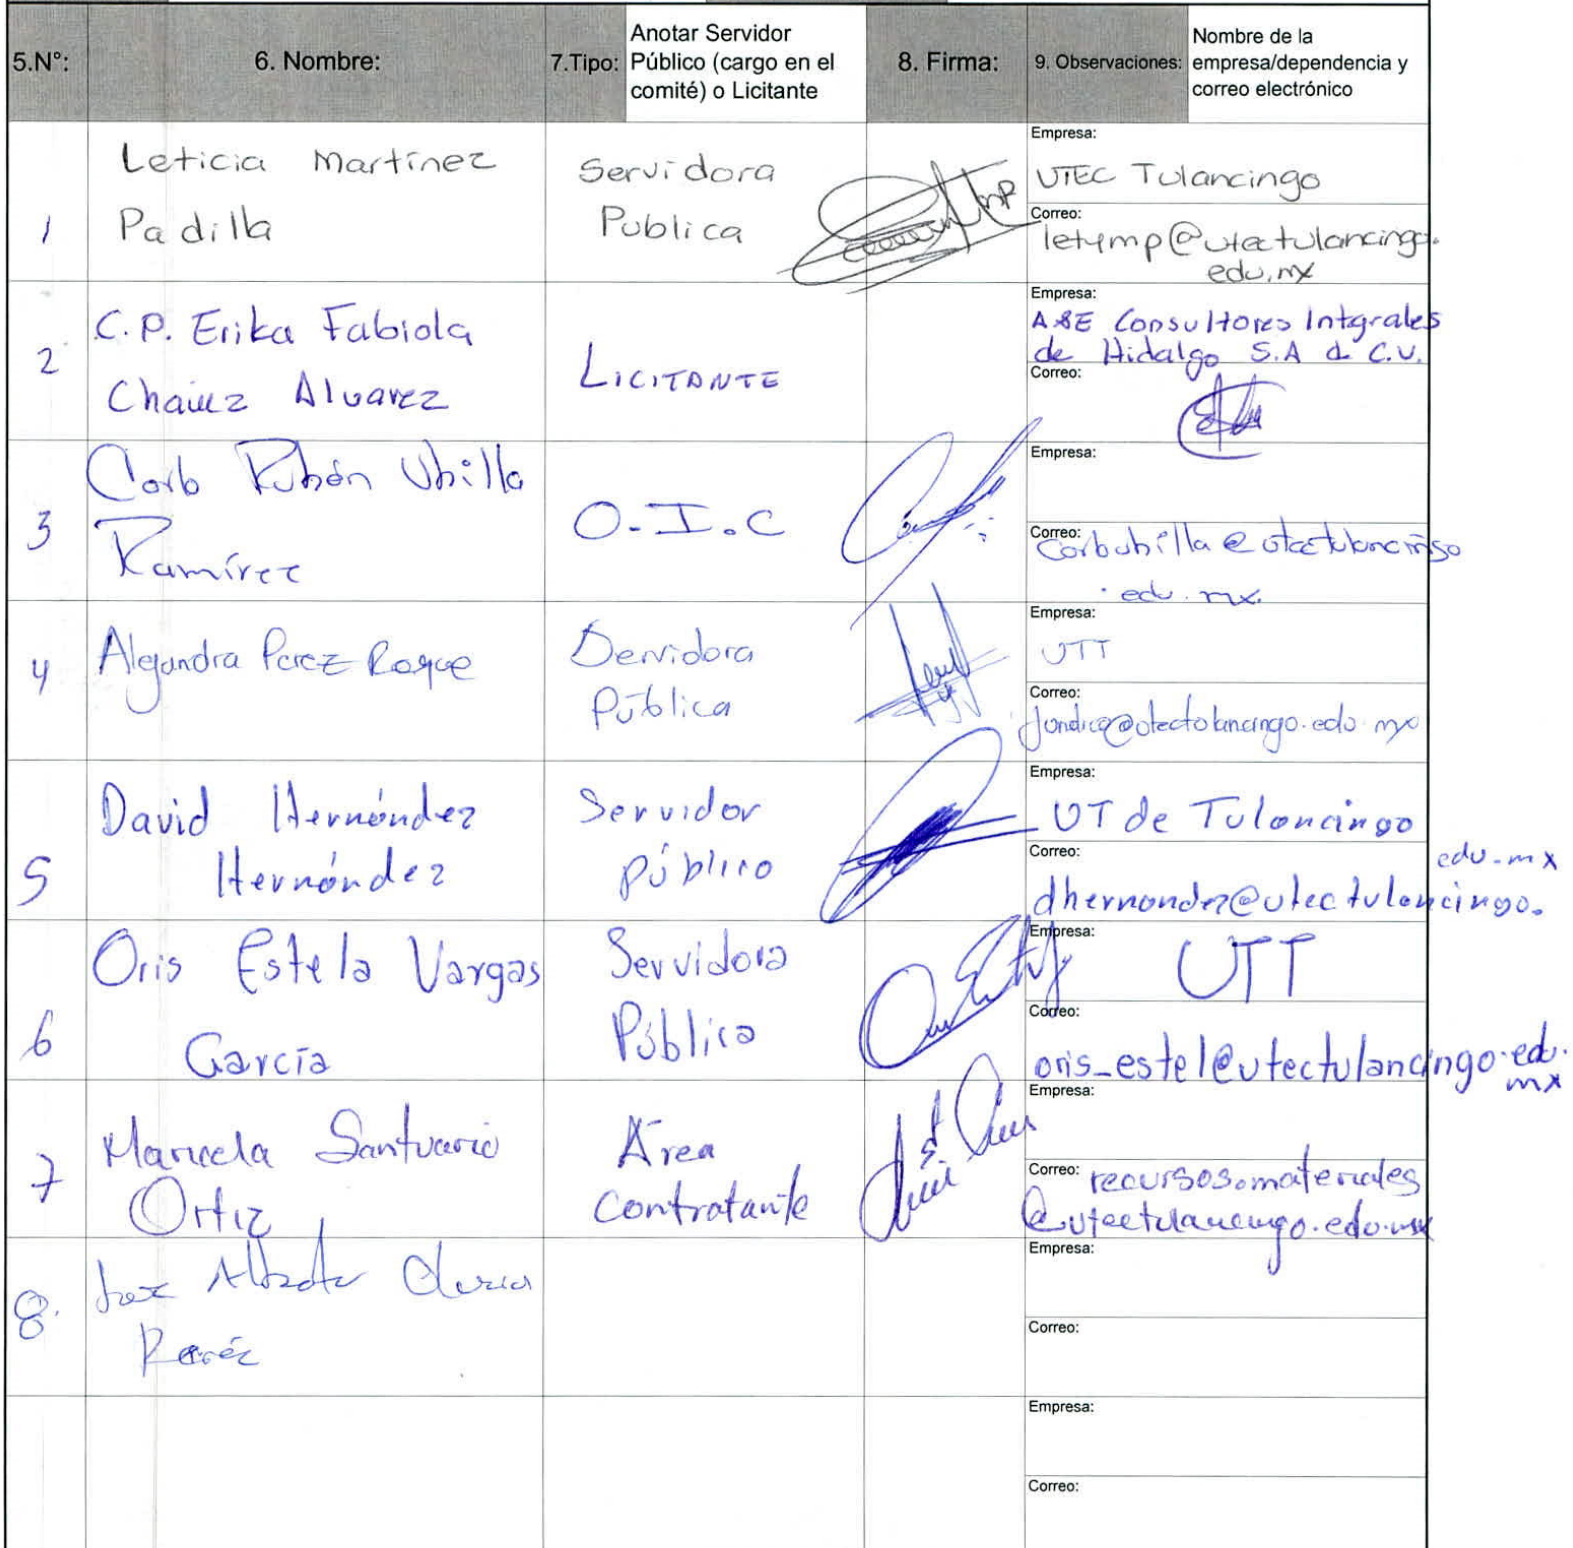 5.N°: 6. Nombre: 7.Tipo: Anotar Servidor Público (cargo en el comité) o Licitante 8. Firma: 9. Observaciones: Nombre de la empresa/dependencia y correo electrónico
1
Leticia Martínez
Padilla
Servidora
Publica
Empresa:
UTEC Tulancingo
Correo:
letymp@utectulancingo.
edu.mx
2
C.P. Erika Fabiola
Chávez Alvarez
LICITANTE
Empresa:
A&E Consultores Integrales
de Hidalgo S.A d C.V.
Correo:
3
Rubén Ubilla
Ramírez
O.I.C
Empresa:
Correo:
@utectulancingo
.edu.mx.
4
Alejandra Perez Roque
Servidora
Pública
Empresa:
UTT
Correo:
juridico@utectulancingo.edu.mx
5
David Hernández
Hernández
Servidor
Público
Empresa:
UT de Tulancingo
Correo:
edu.mx
dhernandez@utectulancingo.
6
Oris Estela Vargas
García
Servidora
Pública
Empresa:
UTT
Correo:
oris_estel@utectulancingo.edu.
mx
7
Maricela Santuario
Ortiz
Área
Contratante
Empresa:
Correo:
recursos.materiales
@utectulancingo.edu.mx
8.
Empresa:
Correo:
Empresa:
Correo: